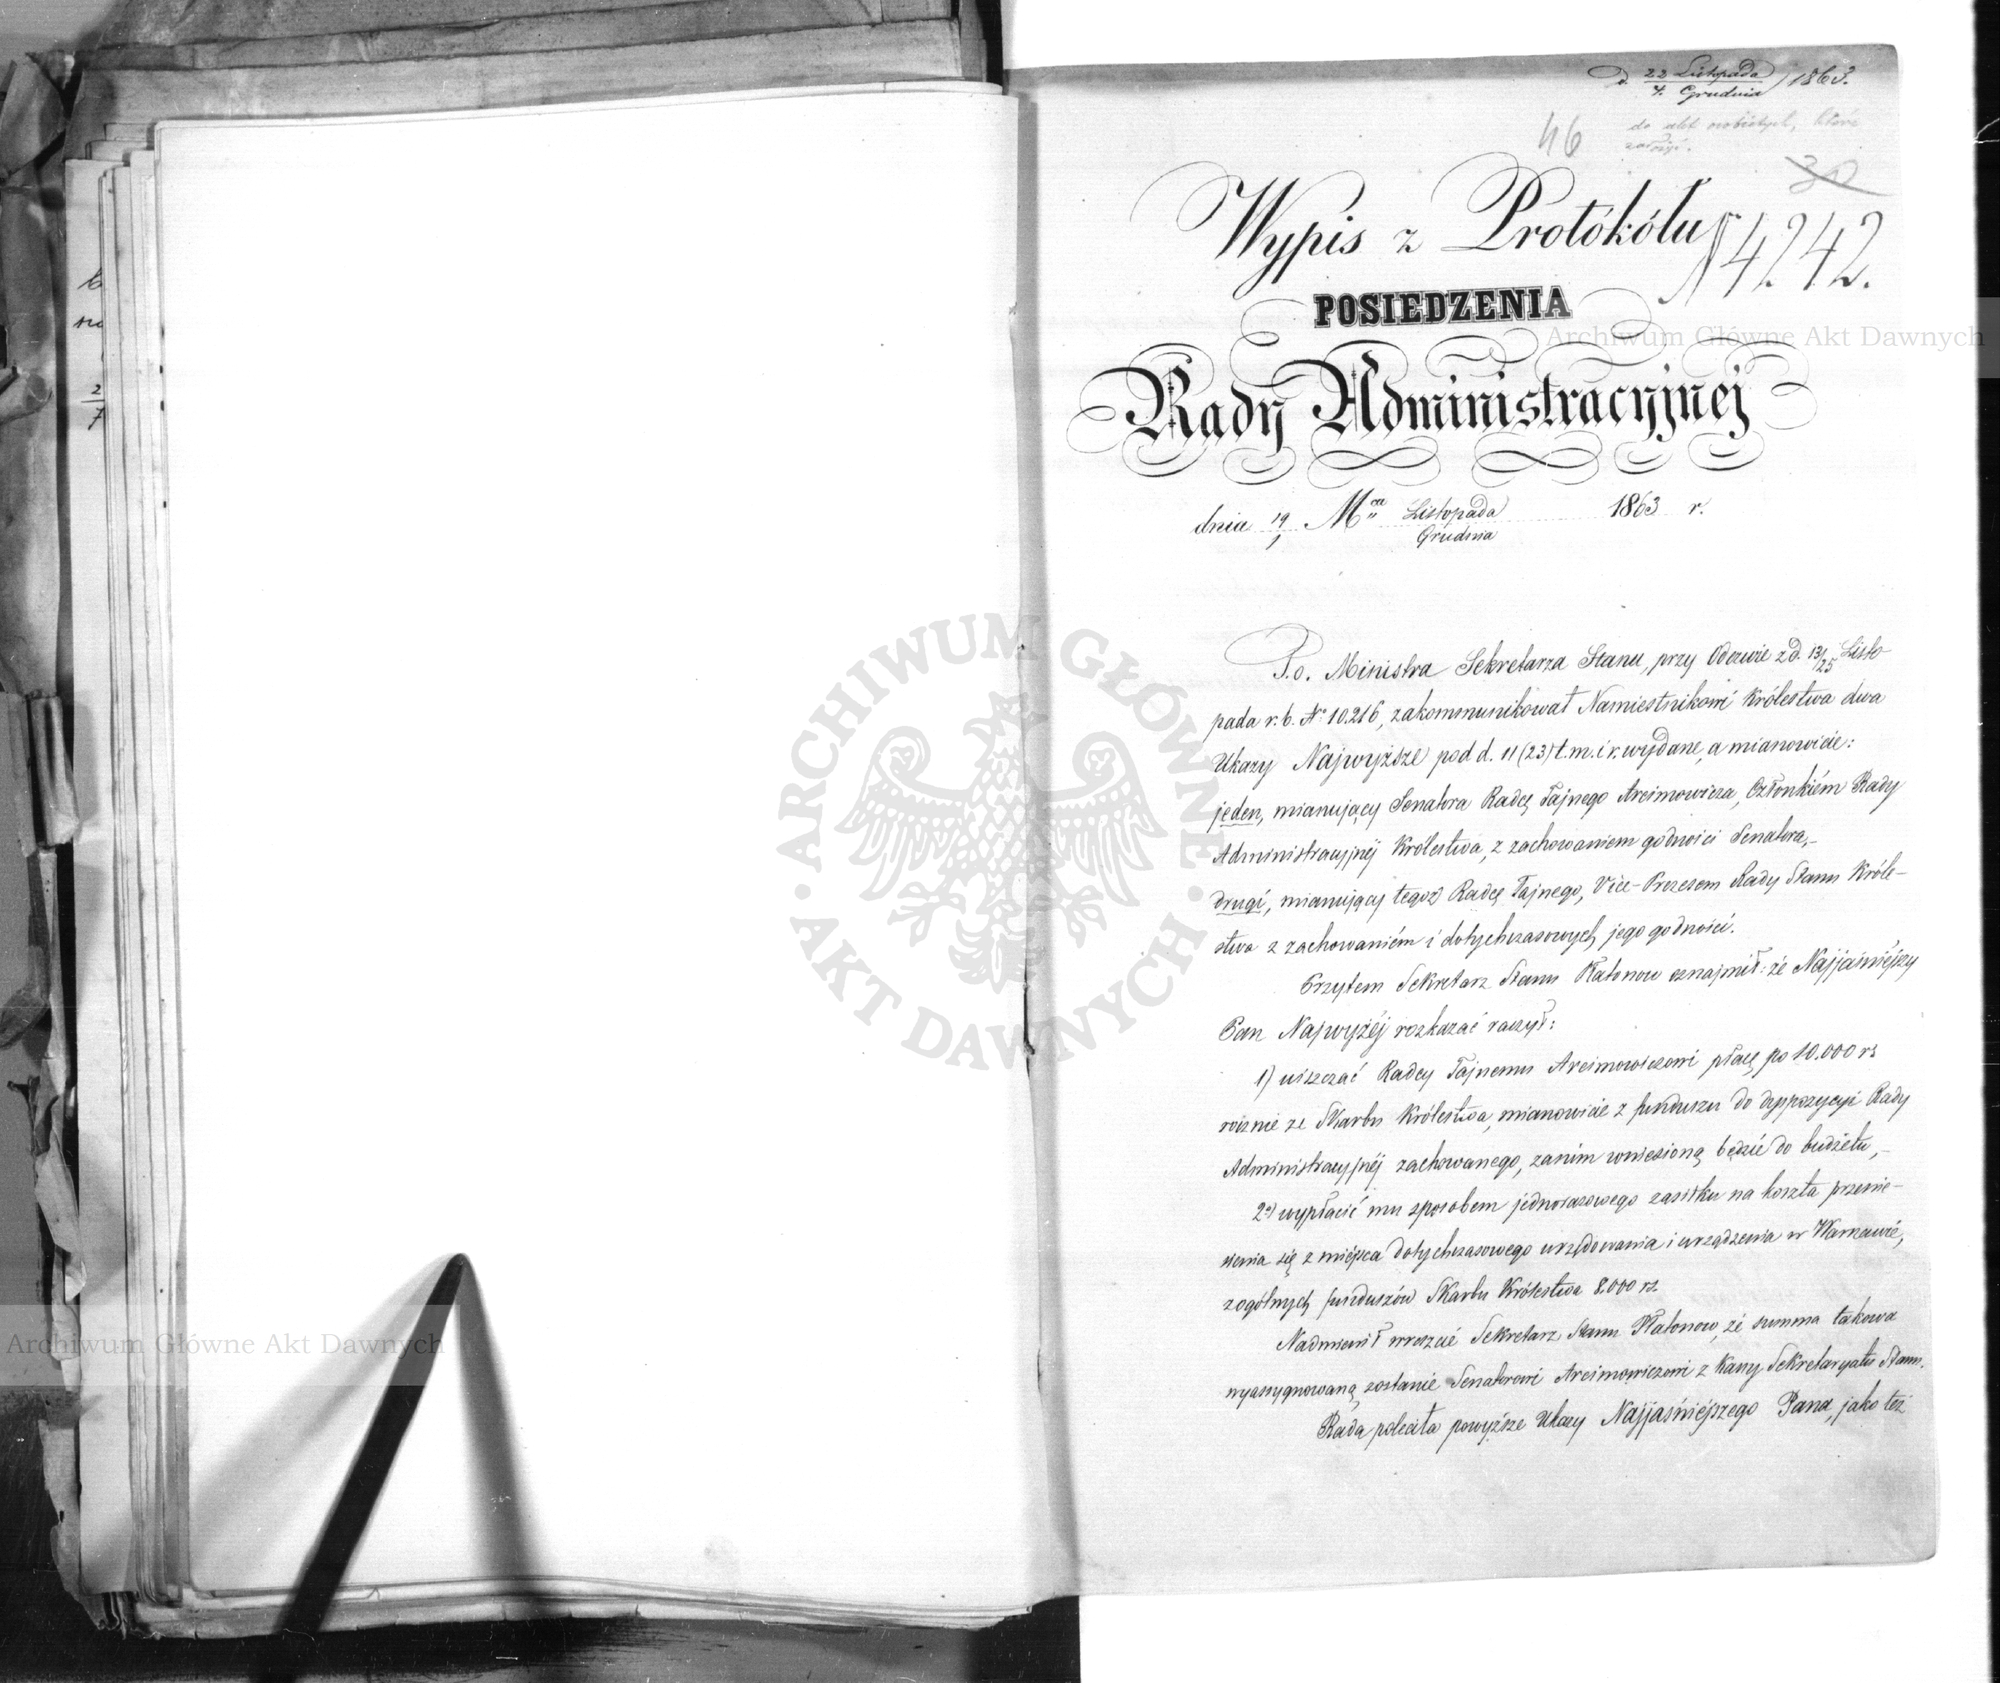 d. 22 Listopada / 1863.
4. Grudnia
do akt osobistych, które
46
30
Wypis z Protókółu
N 4242.
POSIEDZENIA
Rady Administracyjnéj
dnia 19 Mca Listopada 1863 r.
1 Grudnia
P.o. Ministra Sekretarza Stanu, przy Odezwie z d. 13/25 Listo-
pada r.b. No 10.216, zakommunikował Namiestnikowi Królestwa dwa
Ukazy Najwyższe pod d. 11 (23) t.m. i r. wydane, a mianowicie:
jeden, mianujący Senatora Radcę Tajnego Arcimowicza, Członkiém Rady
Administracyjnéj Królestwa, z zachowaniem godności Senatora,-
drugi, mianujący tegoż Radcę Tajnego, Vice-Prezesem Rady Stanu Króle-
stwa z zachowaniém i dotychczasowych jego godności.
Przytem Sekretarz Stanu Płatonow oznajmił: że Najjaśniejszy
Pan Najwyżéj rozkazać raczył:
1) uiszczać Radcy Tajnemu Arcimowiczowi płacę po 10.000 rs
rocznie ze Skarbu Królestwa, mianowicie z funduszu do dyspozycyi Rady
Administracyjnéj zachowanego, zanim wniesioną będzie do budżetu,-
2o) wypłacić mu sposobem jednorazowego zasiłku na koszta przenie-
sienia się z miejsca dotychczasowego urzędowania i urządzenia w Warszawie,
z ogólnych funduszów Skarbu Królestwa 8.000 rs.
Nadmienił wreszcie Sekretarz Stanu Płatonow, że summa takowa
wyassygnowaną zostanie Senatorowi Arcimowiczowi z Kassy Sekretaryatu Stanu.
Rada poleciła powyższe Ukazy Najjaśniejszego Pana, jako też
Archiwum Główne Akt Dawnych
ARCHIWUM GŁÓWNE
AKT DAWNYCH
Archiwum Główne Akt Dawnych